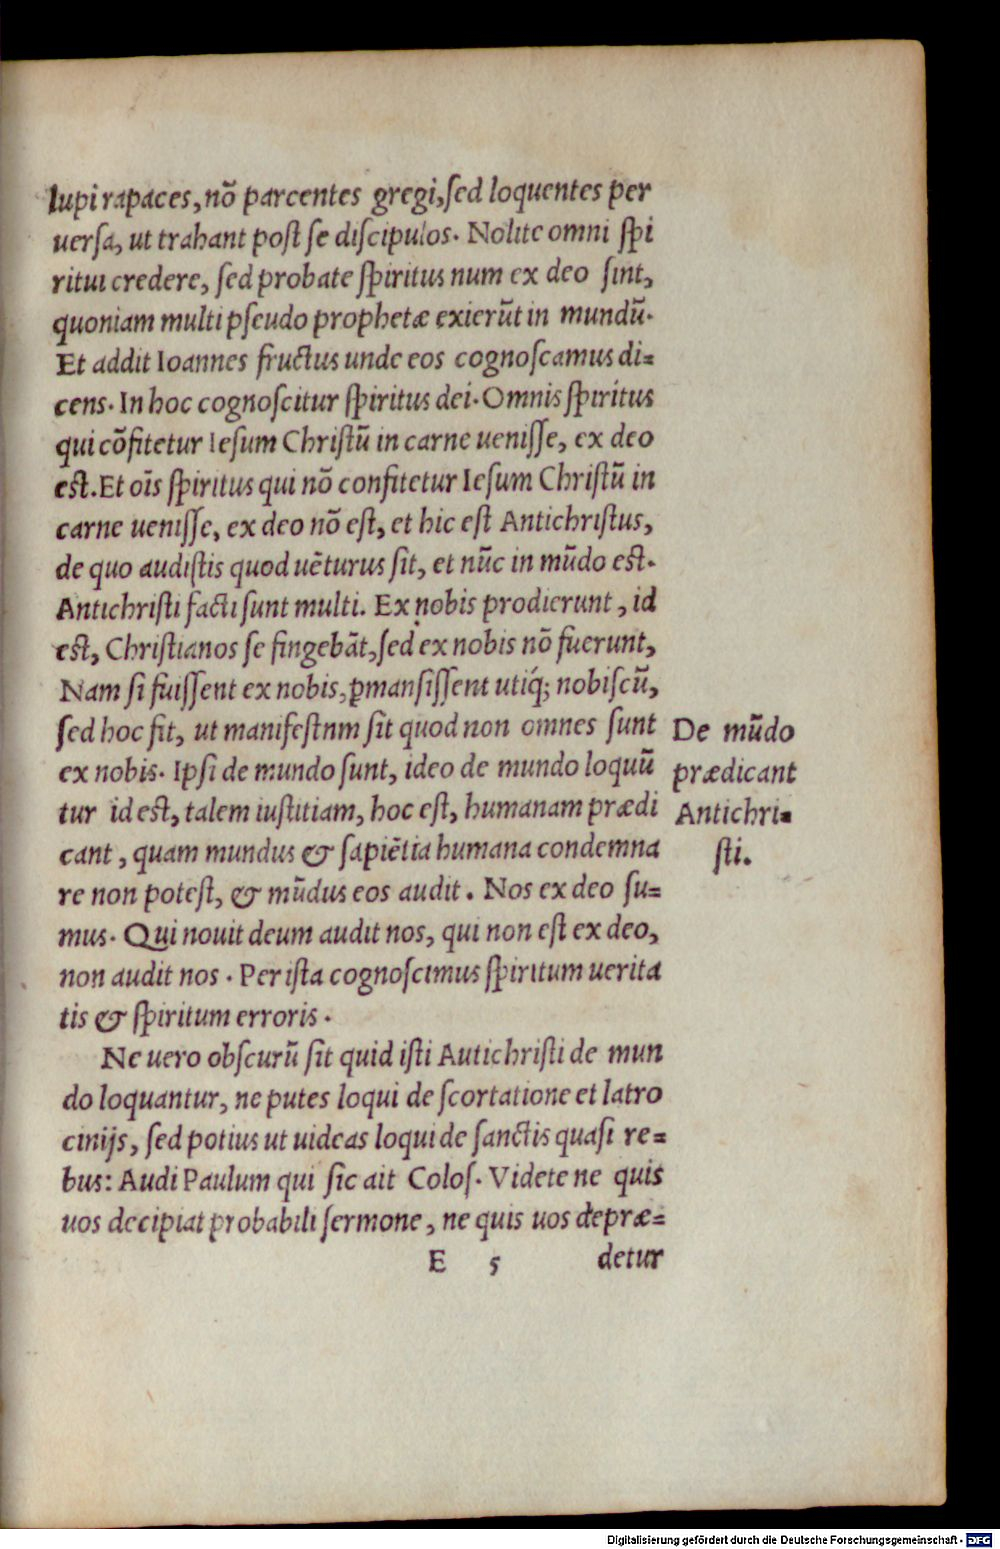 lupi rapaces, nõ parcentes gregi, sed loquentes per
uersa, ut trahant post se discipulos. Nolite omni spi
ritui credere, sed probate spiritus num ex deo sint,
quoniam multi pseudo prophetæ exierũt in mundũ.
Et addit Ioannes fructus unde eos cognoscamus di=
cens. In hoc cognoscitur spiritus dei. Omnis spiritus
qui cõfitetur Iesum Christũ in carne uenisse, ex deo
est. Et oĩs spiritus qui nõ confitetur Iesum Christũ in
carne uenisse, ex deo nõ est, et hic est Antichristus,
de quo audistis quod uẽturus sit, et nũc in mũdo est.
Antichristi facti sunt multi. Ex nobis prodierunt, id
est, Christianos se fingebãt, sed ex nobis nõ fuerunt,
Nam si fuissent ex nobis, ꝑmansissent utiq́; nobiscũ,
sed hoc fit, ut manifestnm sit quod non omnes sunt
ex nobis. Ipsi de mundo sunt, ideo de mundo loquũ
tur id est, talem iustitiam, hoc est, humanam prædi
cant, quam mundus & sapiẽtia humana condemna
re non potest, & mũdus eos audit. Nos ex deo su=
mus. Qui nouit deum audit nos, qui non est ex deo,
non audit nos. Per ista cognoscimus spiritum uerita
tis & spiritum erroris.
De mũdo
prædicant
Antichri=
sti.
Ne uero obscurũ sit quid isti Autichristi de mun
do loquantur, ne putes loqui de scortatione et latro
cinijs, sed potius ut uideas loqui de sanctis quasi re=
bus: Audi Paulum qui sic ait Colos. Videte ne quis
uos decipiat probabili sermone, ne quis uos depræ=
E 5 detur
Digitalisierung gefördert durch die Deutsche Forschungsgemeinschaft - DFG